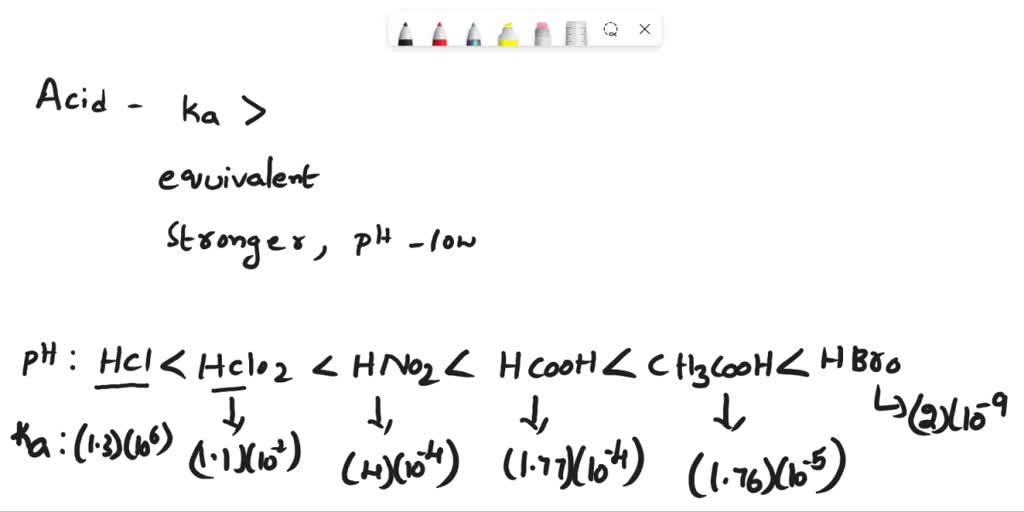 Acid - Ka >
equivalent
Stronger, pH - low
pH : HCl < HClO2 < HNO2 < HCOOH < CH3COOH < HBrO
Ka : (1.3)(10^6) (1.1)(10^-2) (4)(10^-4) (1.77)(10^-4) (1.76)(10^-5) ↳ (2)(10^-9